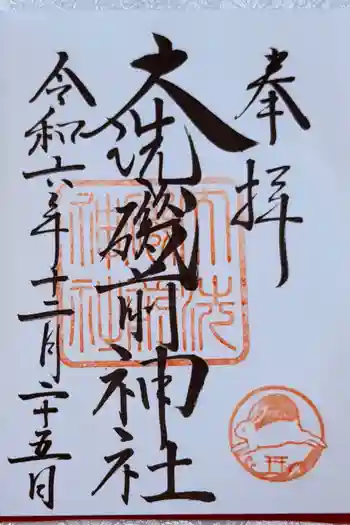 奉拝
大洗磯前神社
令和六年十二月二十五日
大洗
磯前
神社